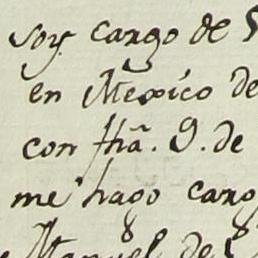 soy cargo de
en Mexico de
con fhã. 9. de
me hago carg
Manuel de